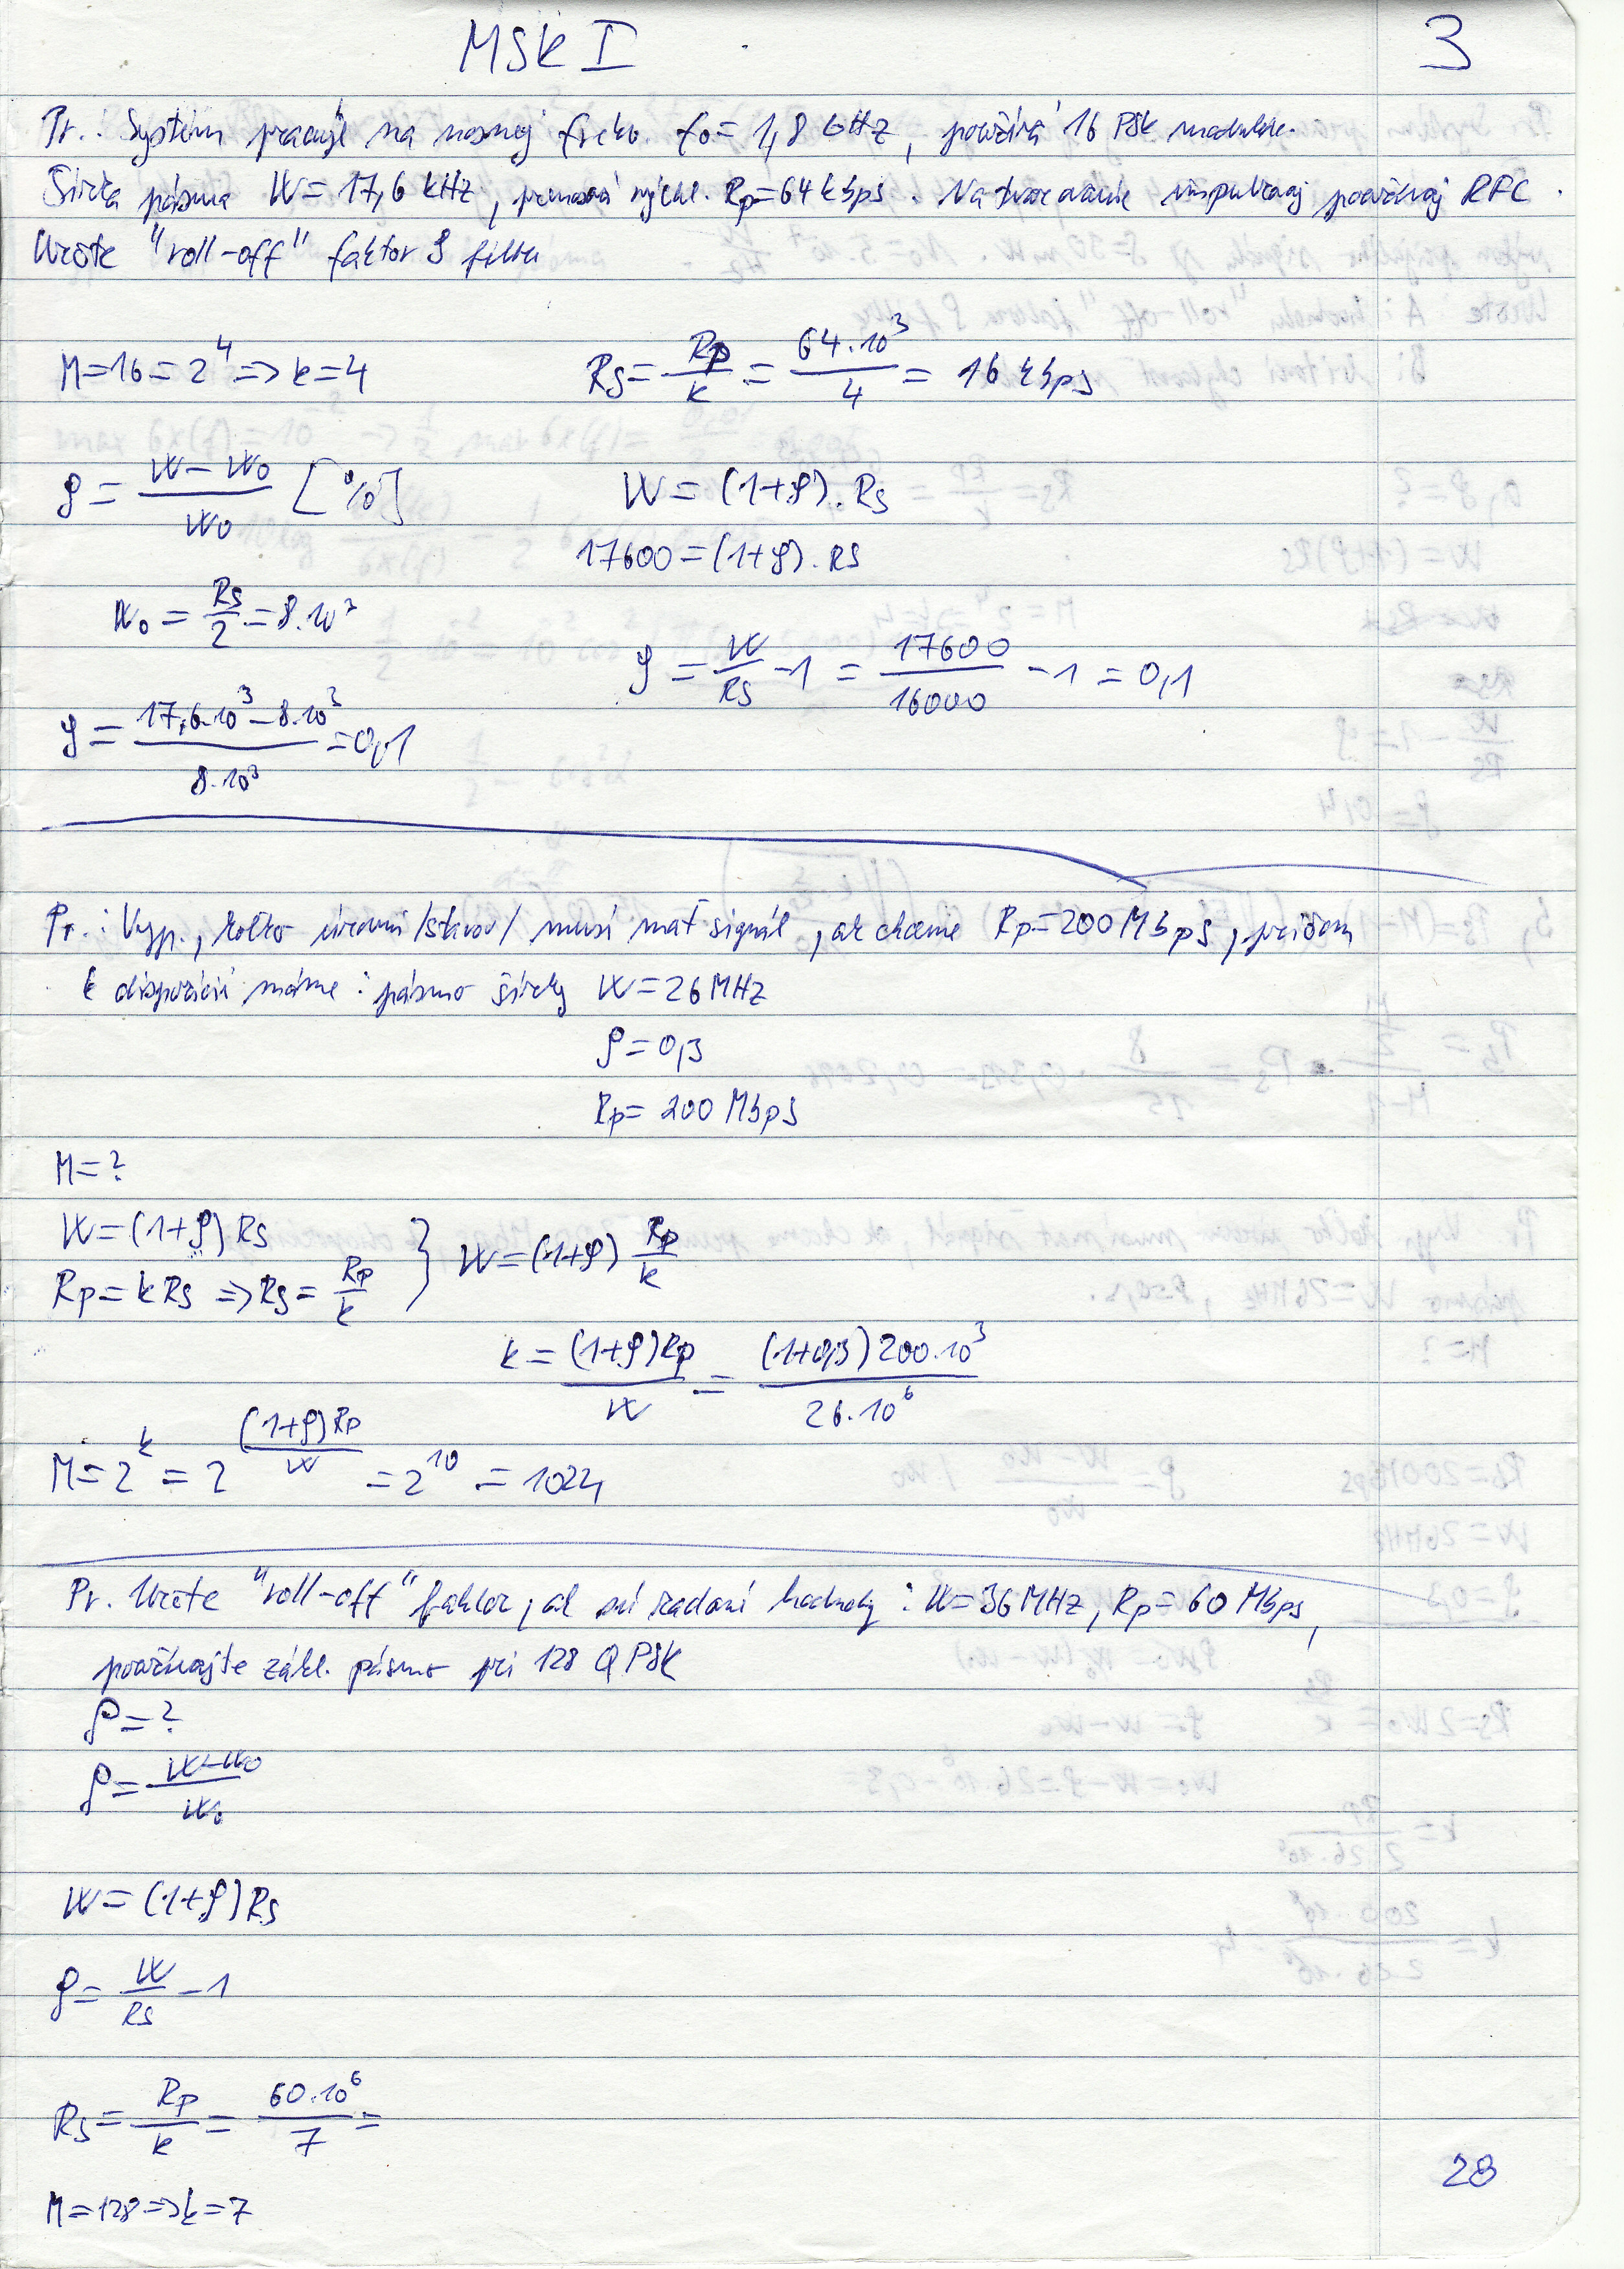 MSK I
3
Pr.: Systém pracuje na nosnej frekv. f₀ = 1,8 GHz, používa 16 PSK modulácie.
Šírka pásma W = 17,6 kHz, prenosová rýchl. Rp = 64 kbps. Na tvarovanie impulzov používaj RFC.
Určte "roll-off" faktor ρ filtra
M = 16 = 2⁴ => k = 4
Rs = Rp/k = 64.10³/4 = 16 kbps
ρ = (W – W₀)/W₀ [%]
W = (1+ρ).Rs
17600 = (1+ρ).Rs
W₀ = Rs/2 = 8.10³
ρ = W/Rs – 1 = 17600/16000 – 1 = 0,1
ρ = (17,6.10³ – 8.10³)/8.10³ = 0,1
Pr.: Vyp., koľko úrovní /stavov/ musí mať signál, ak chceme Rp = 200 Mbps, pričom
k dispozícii máme: pásmo šírky W = 26 MHz
ρ = 0,3
Rp = 200 Mbps
M = ?
W = (1+ρ) Rs
Rp = k Rs => Rs = Rp/k } W = (1+ρ) Rp/k
k = (1+ρ)Rp/W = (1+0,3) 200.10³/26.10⁶
M = 2^k = 2^((1+ρ)Rp/W) = 2¹⁰ = 1024
Pr. Určte "roll-off" faktor, ak sú zadané hodnoty: W = 36 MHz, Rp = 60 Mbps,
používajte zákl. pásmo pri 128 QPSK
ρ = ?
ρ = (W – W₀)/W₀
W = (1+ρ) Rs
ρ = W/Rs – 1
Rs = Rp/k = 60.10⁶/7 =
M = 128 => k = 7
28